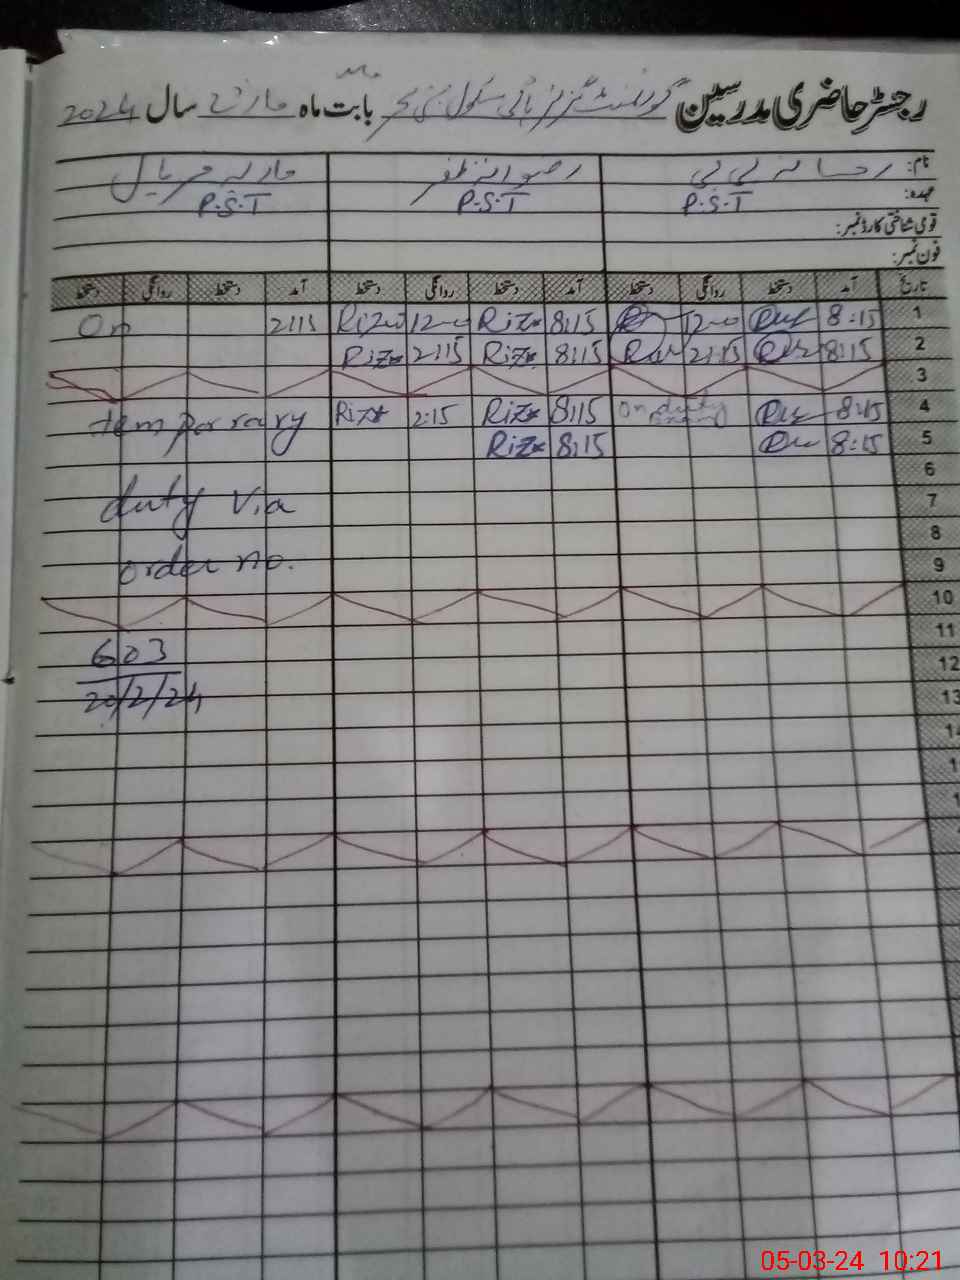 رجسٹر حاضری مدرسین گورنمنٹ گرلز ہائی سکول بابت ماہ مارچ سال 2024
نام: رخسانہ بی بی رضوانہ ظفر
عہدہ: P.S.T P.S.T P.S.T
قومی شناختی کارڈ نمبر:
فون نمبر:
تاریخ آمد دستخط روانگی دستخط آمد دستخط روانگی دستخط آمد دستخط روانگی دستخط
1 8:15 12-00 8:15 Riz 12-00 Riz 2:15 On
2 8:15 2:15 8:15 Riz 2:15 Riz
3
4 8:15 On duty 8:15 Riz 2:15 Riz temporrary
5 8:15 8:15 Riz
6
7 duty Via
8
9 order no.
10
11
12 603
13 20/2/24
05-03-24 10:21